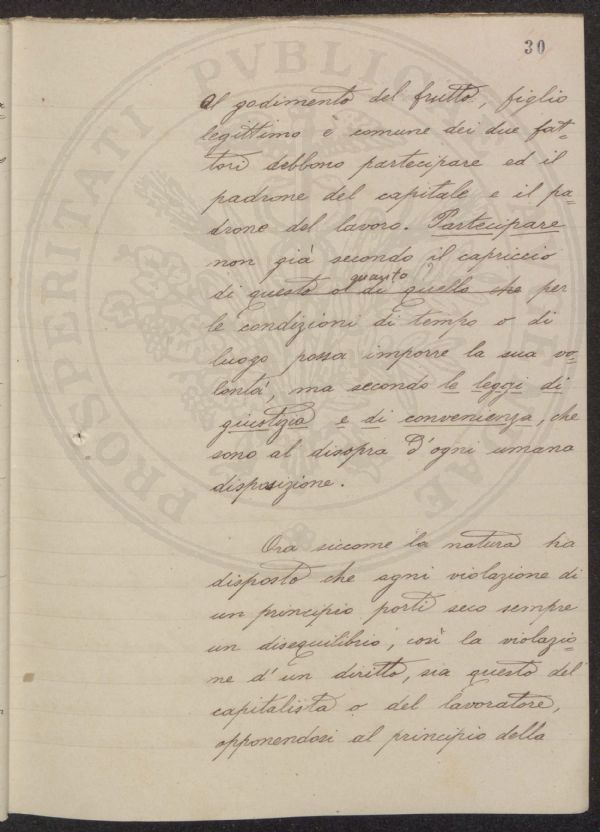 30
al godimento del frutto, figlio
legittimo e comune dei due fat-
tori debbono partecipare ed il
padrone del capitale e il pa-
drone del lavoro. Partecipare
non già secondo il capriccio
quanto
di questo o di quello che per
le condizioni di tempo o di
luogo possa imporre la sua vo-
lontà, ma secondo le leggi di
giustizia e di convenienza, che
sono al disopra d'ogni umana
disposizione.
Ora siccome la natura ha
disposto che ogni violazione di
un principio porti seco sempre
un disequilibrio, così la violazio-
ne d'un diritto, sia questo del
capitalista o del lavoratore,
opponendosi al principio della
PROSPERITATI PVBLICAE